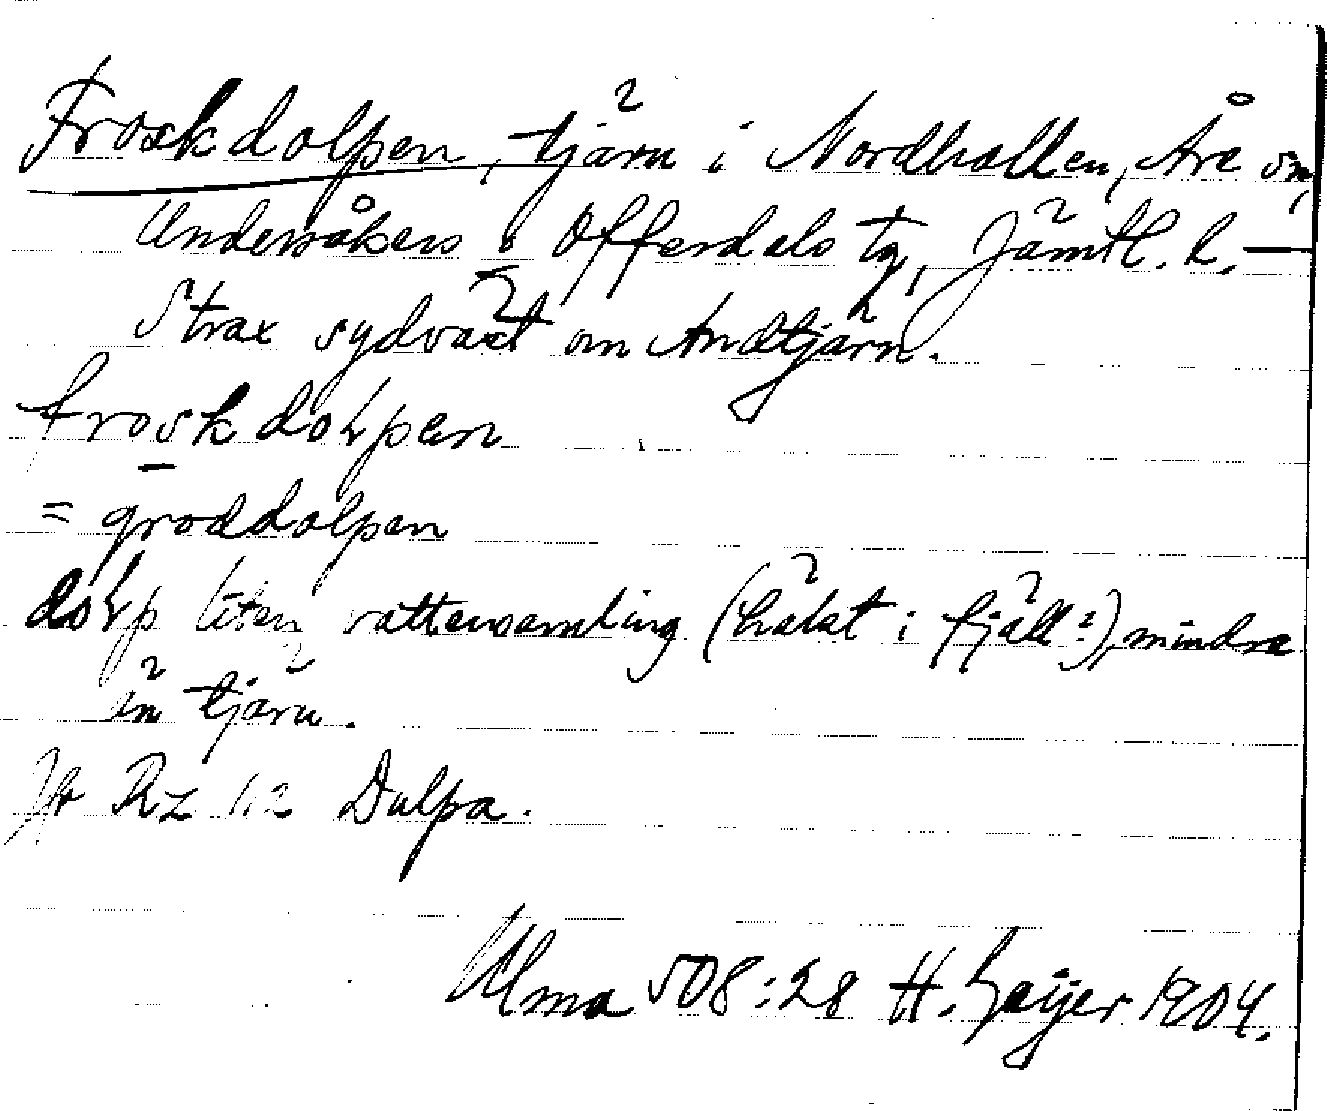 Froskdolpen, tjärn i Nordhallen, Åre sn,
Undersåkers o Offerdals tg, Jämtl. l. —
Strax sydväst om Andtjärn.
froskdoLpen
= groddolpen
doLp liten vattensamling (hålst i fjäll?), mindre
än tjärn.
Jfr Rz 112 Dulpa.
Ulma 508:28 H. Geijer 1904.